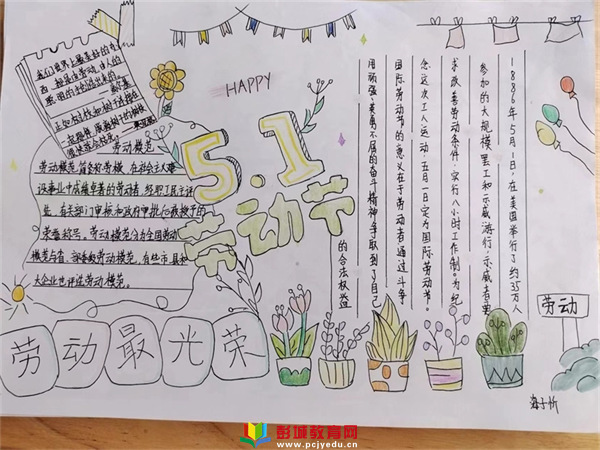 我们世界上最美好的东
西,都是由劳动、由人的
聪明的手创造出来的。
——高尔基
劳动模范
劳动模范,简称劳模,在社会主义建
设事业中成绩卓著的劳动者,经职工民主评
选,有关部门审核和政府审批后被授予的
荣誉称号。劳动模范分为全国劳动
模范与省、部委级劳动模范,有些市、县和
大企业也评选劳动模范。
HAPPY
5.1
劳动节
1886年5月1日,在美国举行了约35万人
参加的大规模罢工和示威游行,示威者要
求改善劳动条件,实行八小时工作制。为纪
念这次工人运动,五月一日定为国际劳动节。
国际劳动节的意义在于劳动者通过斗争
用顽强、英勇不屈的奋斗精神争取到了自己
的合法权益
劳动
劳动最光荣
彭城教育网
www.pcjyedu.cn